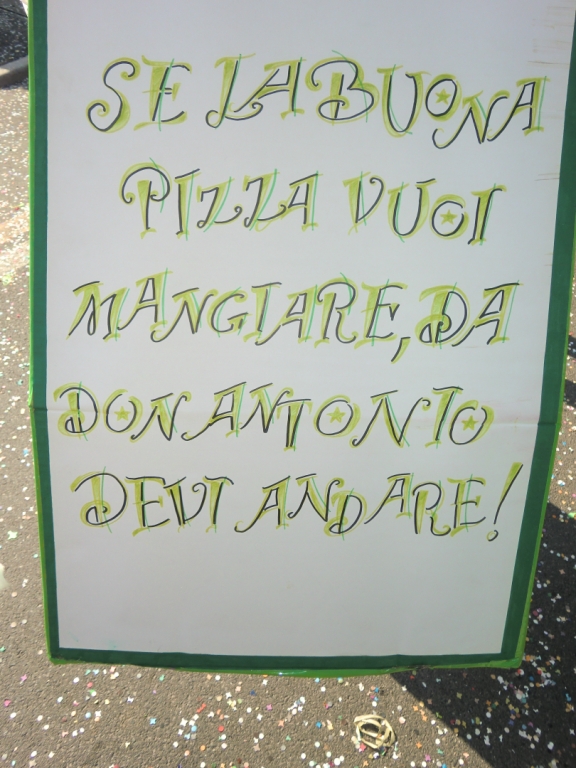 SE LA BUONA
PIZZA VUOI
MANGIARE, DA
DON ANTONIO
DEVI ANDARE!